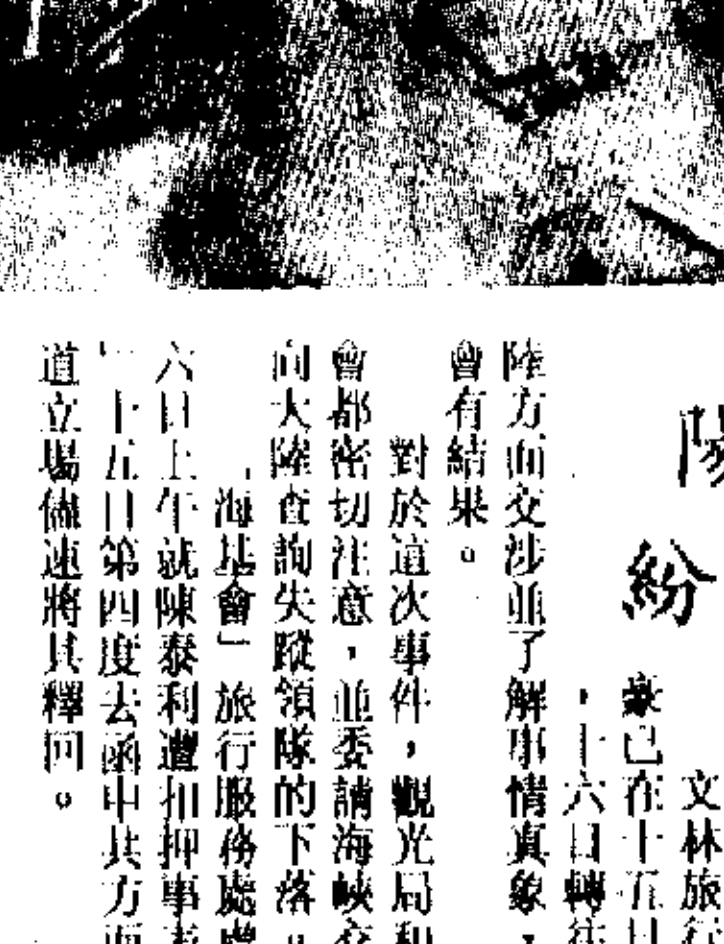 陽
紛
文林旅行
豪已在十五日
，十六日轉往
陸方面交涉並了解事情真象，
會有結果。
對於這次事件，觀光局和
會都密切注意，並委請海峽交
向大陸查詢失蹤領隊的下落。
「海基會」旅行服務處處
六日上午就陳泰利遭扣押事表
十五日第四度去函中共方面
道立場儘速將其釋回。